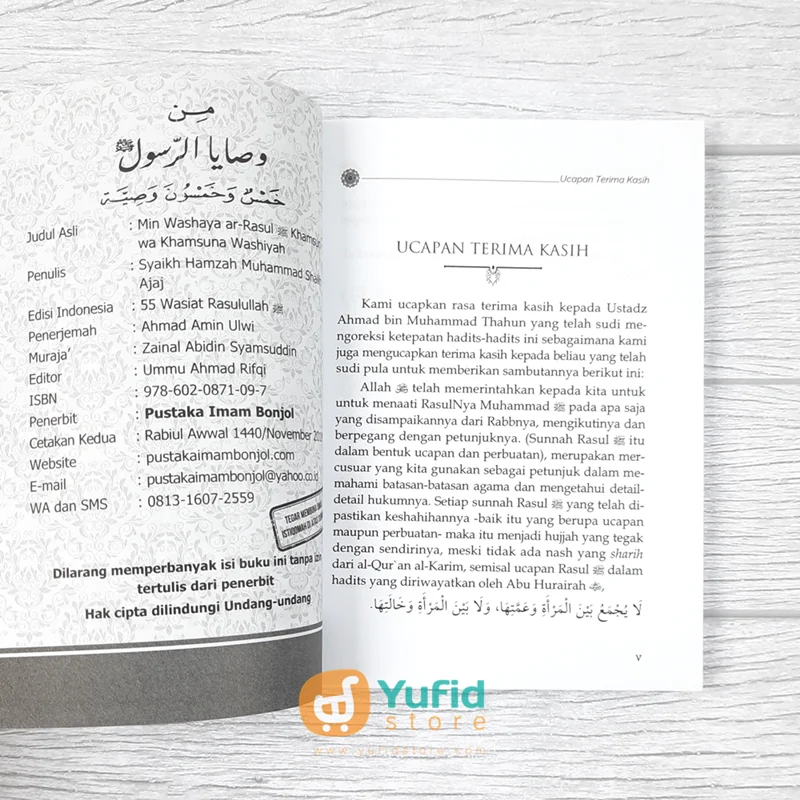 مِنْ
وصايا الرّسول ﷺ
خَمْسٌ وَخَمْسُونَ وَصِيَّة
Judul Asli : Min Washaya ar-Rasul ﷺ Khamsun
wa Khamsuna Washiyah
Penulis : Syaikh Hamzah Muhammad Shalih
Ajaj
Edisi Indonesia : 55 Wasiat Rasulullah ﷺ
Penerjemah : Ahmad Amin Ulwi
Muraja' : Zainal Abidin Syamsuddin
Editor : Ummu Ahmad Rifqi
ISBN : 978-602-0871-09-7
Penerbit : Pustaka Imam Bonjol
Cetakan Kedua : Rabiul Awwal 1440/November
Website : pustakaimambonjol.com
E-mail : pustakaimambonjol@yahoo.co.id
WA dan SMS : 0813-1607-2559
TEGAR
ISTIQOMAH DI ATAS
Dilarang memperbanyak isi buku ini tanpa izin
tertulis dari penerbit
Hak cipta dilindungi Undang-undang
Ucapan Terima Kasih
UCAPAN TERIMA KASIH
Kami ucapkan rasa terima kasih kepada Ustadz
Ahmad bin Muhammad Thahun yang telah sudi me-
ngoreksi ketepatan hadits-hadits ini sebagaimana kami
juga mengucapkan terima kasih kepada beliau yang telah
sudi pula untuk memberikan sambutannya berikut ini:
Allah ﷻ telah memerintahkan kepada kita untuk
untuk menaati RasulNya Muhammad ﷺ pada apa saja
yang disampaikannya dari Rabbnya, mengikutinya dan
berpegang dengan petunjuknya. (Sunnah Rasul ﷺ itu
dalam bentuk ucapan dan perbuatan), merupakan mer-
cusuar yang kita gunakan sebagai petunjuk dalam me-
mahami batasan-batasan agama dan mengetahui detail-
detail hukumnya. Setiap sunnah Rasul ﷺ yang telah di-
pastikan keshahihannya -baik itu yang berupa ucapan
maupun perbuatan- maka itu menjadi hujjah yang tegak
dengan sendirinya, meski tidak ada nash yang sharih
dari al-Qur`an al-Karim, semisal ucapan Rasul ﷺ dalam
hadits yang diriwayatkan oleh Abu Hurairah ,
لَا يُجْمَعُ بَيْنَ الْمَرْأَةِ وَعَمَّتِهَا، وَلَا بَيْنَ الْمَرْأَةِ وَخَالَتِهَا.
v
Yufid
store
www.yufidstore.com